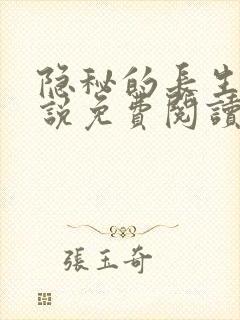 隐秘的長生
說免費閱讀
張玉奇